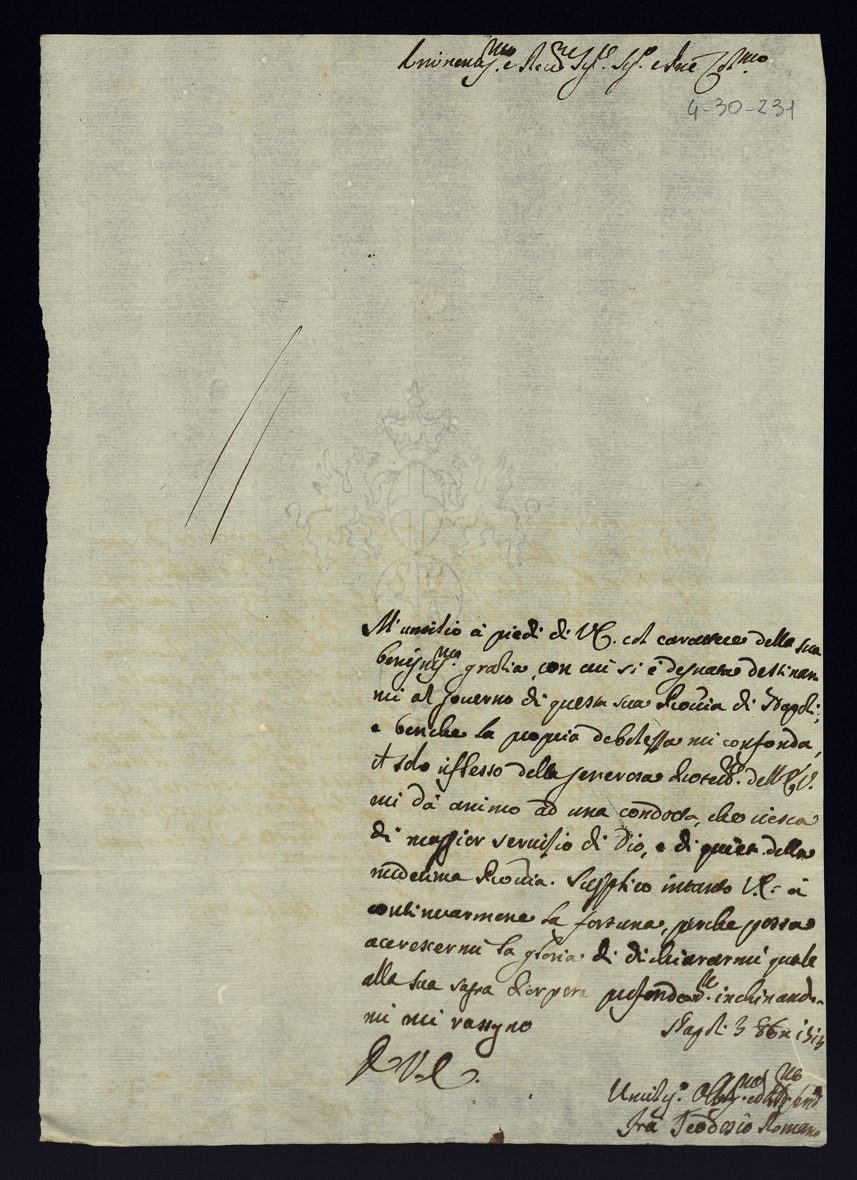 Eminentiss.mo e Rev.mo Sig.re Sig.re e P.ne Col.mo
4-30-231
M'umilio à piedi di V.E. col carattere della sua
benigniss.ma gratia, con cui si è degnata destinar
mi al governo di questa sua Provīa di Napoli;
e benche la propria debolezza mi confonda,
il solo riflesso della generosa Protez.e dell'E.V.
mi dà animo ad una condotta, che riesca
di maggior servizio di Dio, e di quiete della
medema Provīa. Supplico intanto V.E. à
continuarmene la fortuna, perche possa
accrescermi la gloria di dichiararmi quale
alla sua sagra Porpora profondam.te inchinando-
mi mi rassegno
Napoli 3 8bre
D.V.E.
Umiliss.o Obligatiss.mo
Frà Teodosio Romano